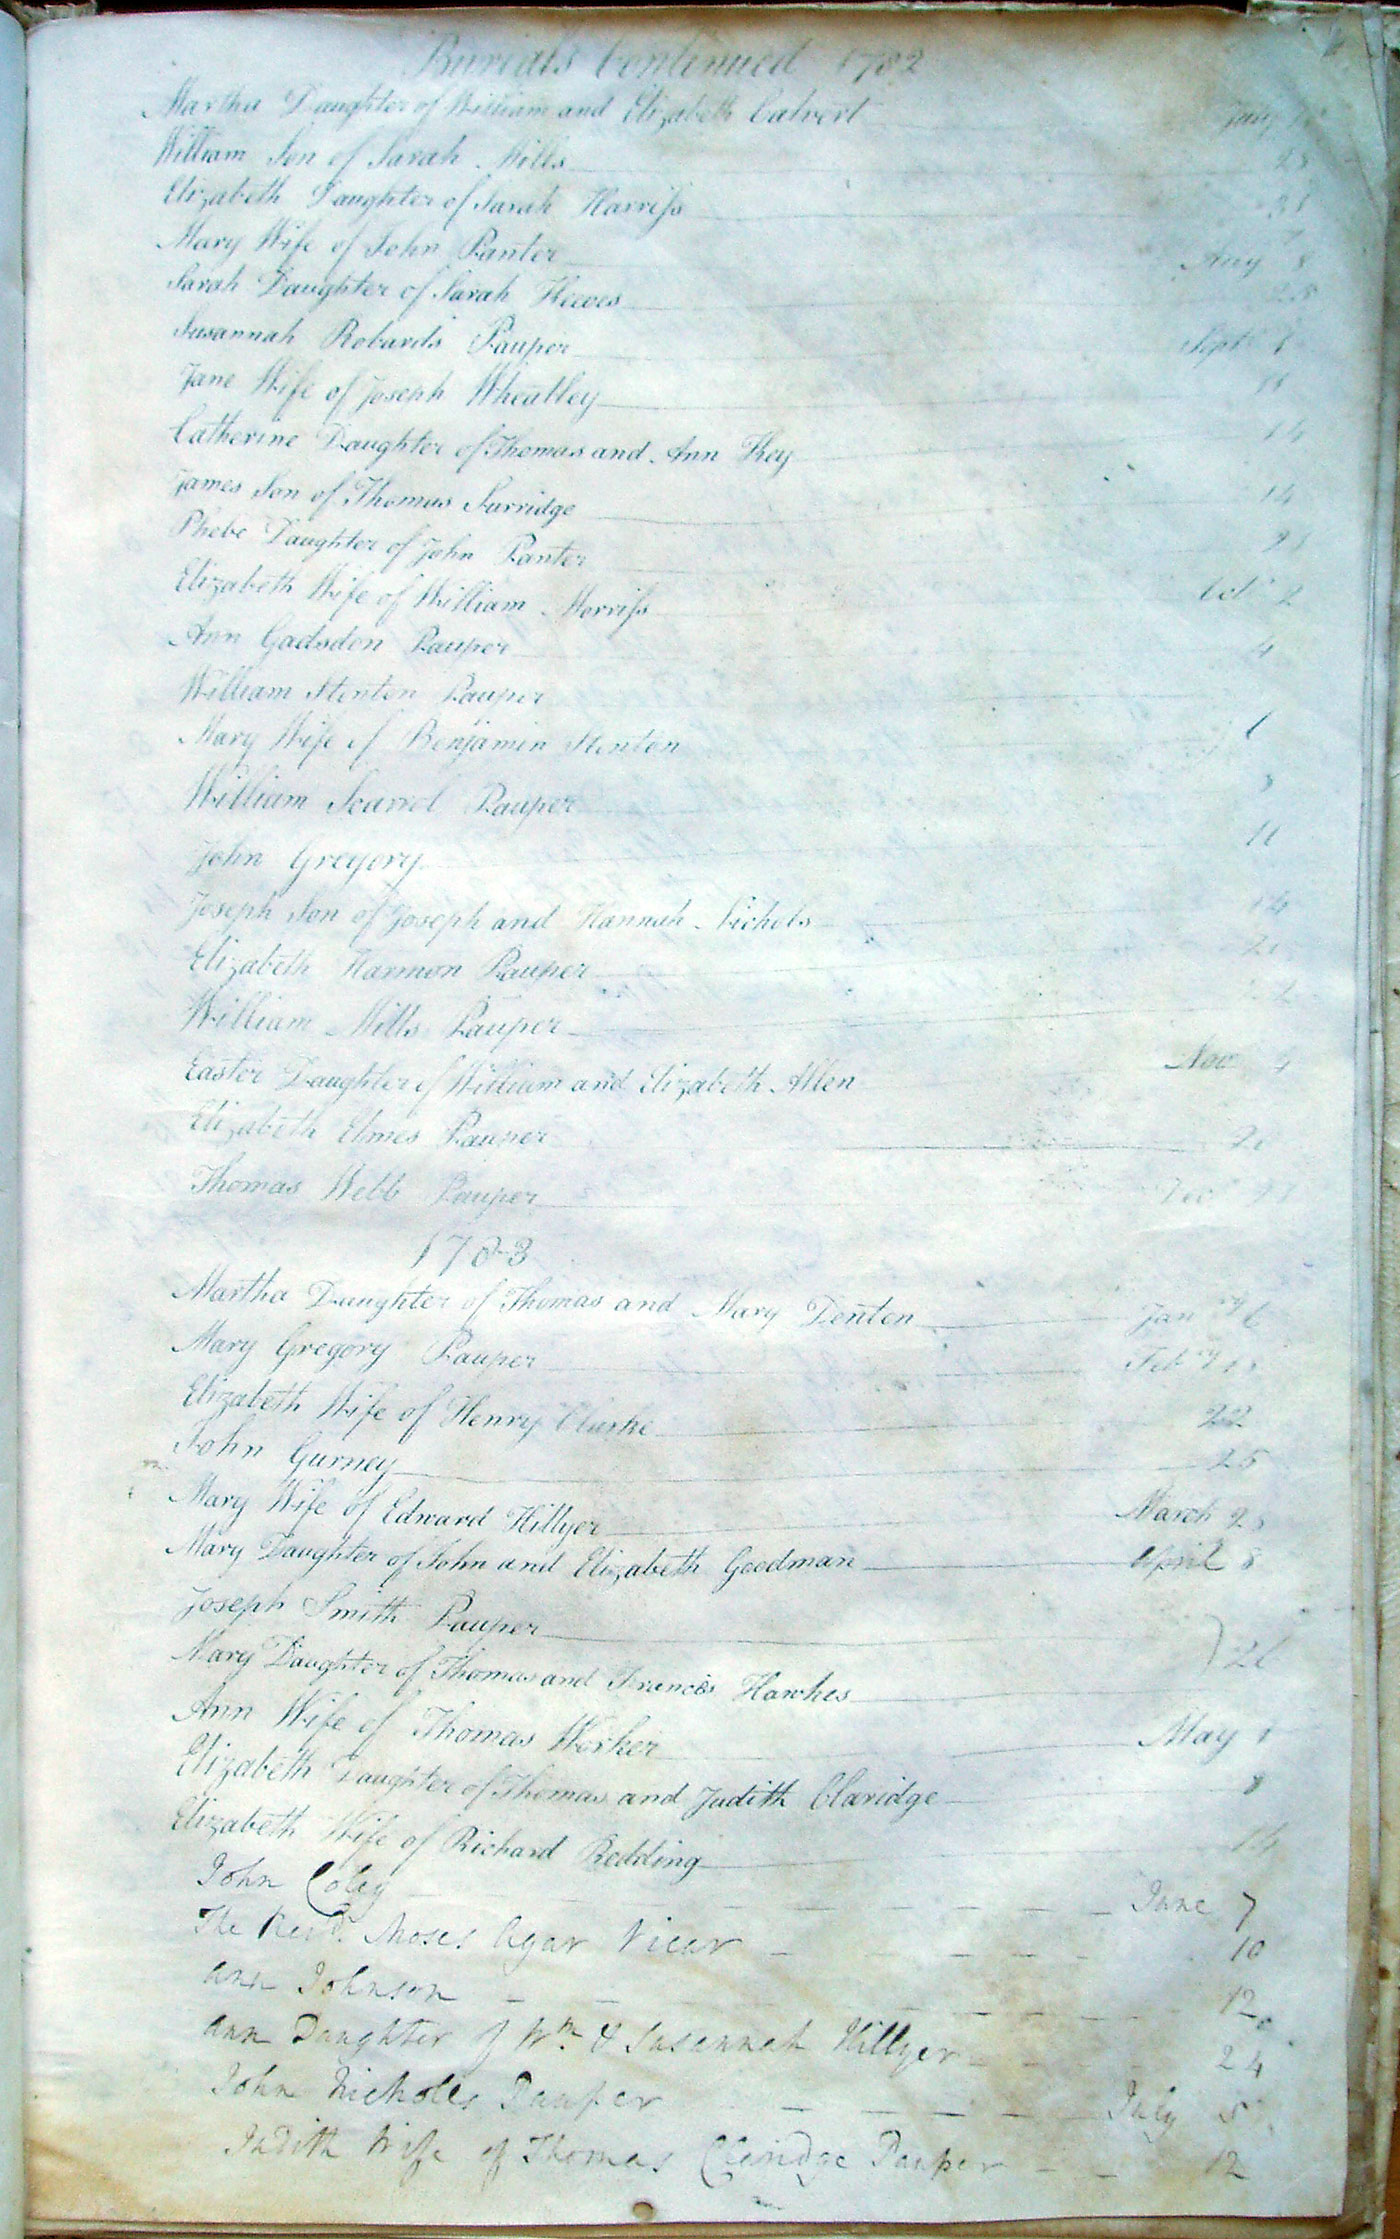 Burials Continued 1782
Martha Daughter of William and Elizabeth Calvert
William Son of Sarah Mills 25
Elizabeth Daughter of Sarah Harriss 31
Mary Wife of John Panter Aug 8
Sarah Daughter of Sarah Heeves 25
Susannah Robards Pauper Sept
Jane Wife of Joseph Wheatley
Catherine Daughter of Thomas and Ann Key 14
James Son of Thomas Surridge 14
Phebe Daughter of John Panter 21
Elizabeth Wife of William Morriss Oct 2
Ann Gadsden Pauper 4
William Stenton Pauper
Mary Wife of Benjamin Stenton
William Scarrol Pauper
John Gregory 11
Joseph Son of Joseph and Hannah Nichols 14
Elizabeth Harmon Pauper
William Mills Pauper
Easter Daughter of William and Elizabeth Allen Nov 4
Elizabeth Elmes Pauper
Thomas Webb Pauper Dec
1783
Martha Daughter of Thomas and Mary Denton Janry 6
Mary Gregory Pauper Febry
Elizabeth Wife of Henry Clarke 22
John Gurney 25
Mary Wife of Edward Hillyer March
Mary Daughter of John and Elizabeth Goodman April 8
Joseph Smith Pauper
Mary Daughter of Thomas and Francis Hawkes 26
Ann Wife of Thomas Worker May 1
Elizabeth Daughter of Thomas and Judith Claridge 8
Elizabeth Wife of Richard Redding 14
John Coley June 7
The Revd. Moses Agar Vicar 10
Ann Johnson 12
Ann Daughter of Wm. & Susannah Hillyer 24
John Nicholls Pauper July 5
Judith Wife of Thomas Claridge Pauper 12